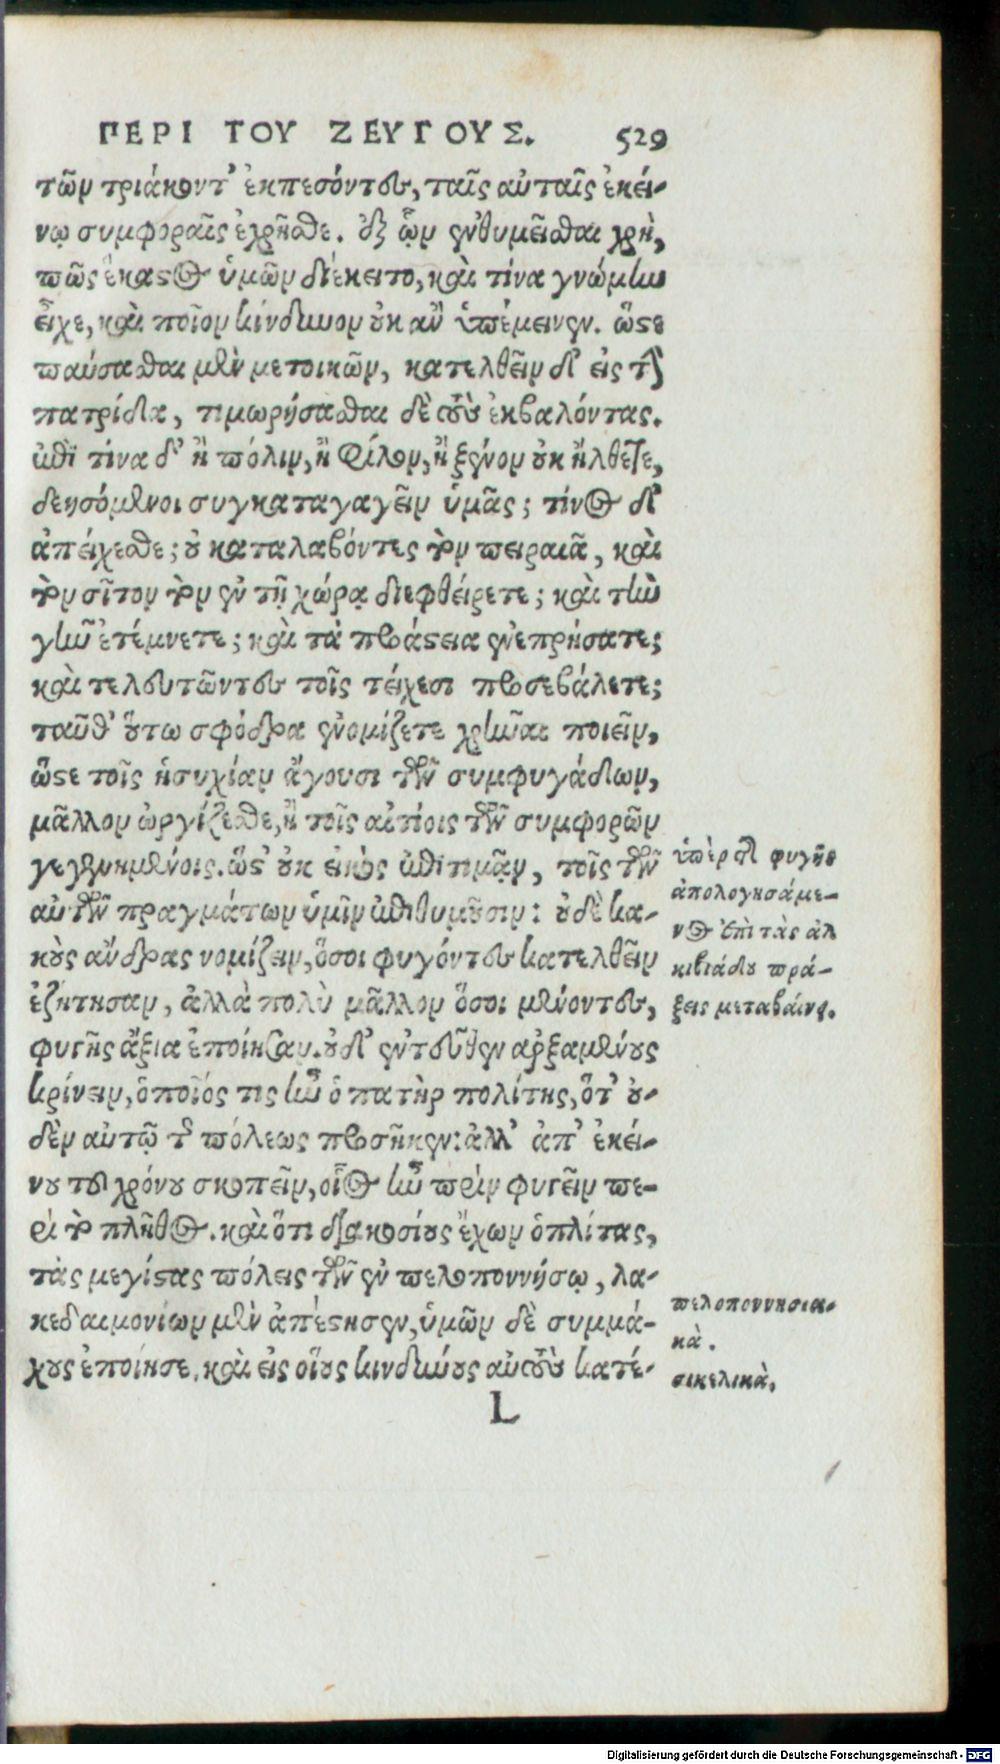 ΠΕΡΙ ΤΟΥ ΖΕΥΓΟΥΣ. 529
τῶν τριάκοντ' ἐκπεσόντες, ταῖς αὐταῖς ἐκεί-
νῳ συμφοραῖς ἐχρῆσθε. ἐξ ὧν ἐνθυμεῖσθαι χρὴ,
πῶς ἕκαστος ὑμῶν διέκειτο, καὶ τίνα γνώμην
εἶχε, καὶ ποῖον κίνδυνον οὐκ ἂν ὑπέμεινεν. ὥστε
παύσασθαι μὲν μετοικῶν, κατελθεῖν δ' εἰς τὴν
πατρίδα, τιμωρήσασθαι δὲ τοὺς ἐκβαλόντας.
ἐπὶ τίνα δ' ἢ πόλιν, ἢ φίλον, ἢ ξένον οὐκ ἤλθετε,
δεησόμενοι συγκαταγαγεῖν ὑμᾶς; τίνος δ'
ἀπείχεσθε; οὐ καταλαβόντες τὸν πειραιᾶ, καὶ
τὸν σῖτον τὸν ἐν τῇ χώρᾳ διεφθείρετε; καὶ τὴν
γῆν ἐτέμνετε; καὶ τὰ προάστεια ἐνεπρήσατε;
καὶ τελευτῶντες τοῖς τείχεσι προσεβάλετε;
ταῦθ' οὕτω σφόδρα ἐνομίζετε χρῆναι ποιεῖν,
ὥστε τοῖς ἡσυχίαν ἄγουσι τῶν συμφυγάδων,
μᾶλλον ὠργίζεσθε, ἢ τοῖς αἰτίοις τῶν συμφορῶν
γεγενημένοις. ὥστ' οὐκ εἰκὸς ἐπιτιμᾷν, τοῖς τῶν
αὐτῶν πραγμάτων ὑμῖν ἐπιθυμοῦσιν: οὐδὲ κα-
κοὺς ἄνδρας νομίζειν, ὅσοι φυγόντες κατελθεῖν
ἐζήτησαν, ἀλλὰ πολὺ μᾶλλον ὅσοι μένοντες,
φυγῆς ἄξια ἐποίησαν. οὐδ' ἐντεῦθεν ἀρξαμένους
κρίνειν, ὁποῖός τις ἦν ὁ πατὴρ πολίτης, ὅτ' οὐ-
δὲν αὐτῷ τῆς πόλεως προσῆκεν: ἀλλ' ἀπ' ἐκεί-
νου τοῦ χρόνου σκοπεῖν, οἷος ἦν πρὶν φυγεῖν πε-
ρὶ τὸ πλῆθος. καὶ ὅτι διακοσίους ἔχων ὁπλίτας,
τὰς μεγίστας πόλεις τῶν ἐν πελοποννήσῳ, λα-
κεδαιμονίων μὲν ἀπέστησεν, ὑμῶν δὲ συμμά-
χους ἐποίησε, καὶ εἰς οἵους κινδύνους αὐτοὺς κατέ-
L
ὑπὲρ τῆς φυγῆς
ἀπολογησάμε-
νος ἐπὶ τὰς ἀλ
κιβιάδου πρά-
ξεις μεταβαίνει.
πελοποννησια-
κὰ.
σικελικὰ.
Digitalisierung gefördert durch die Deutsche Forschungsgemeinschaft - DFG